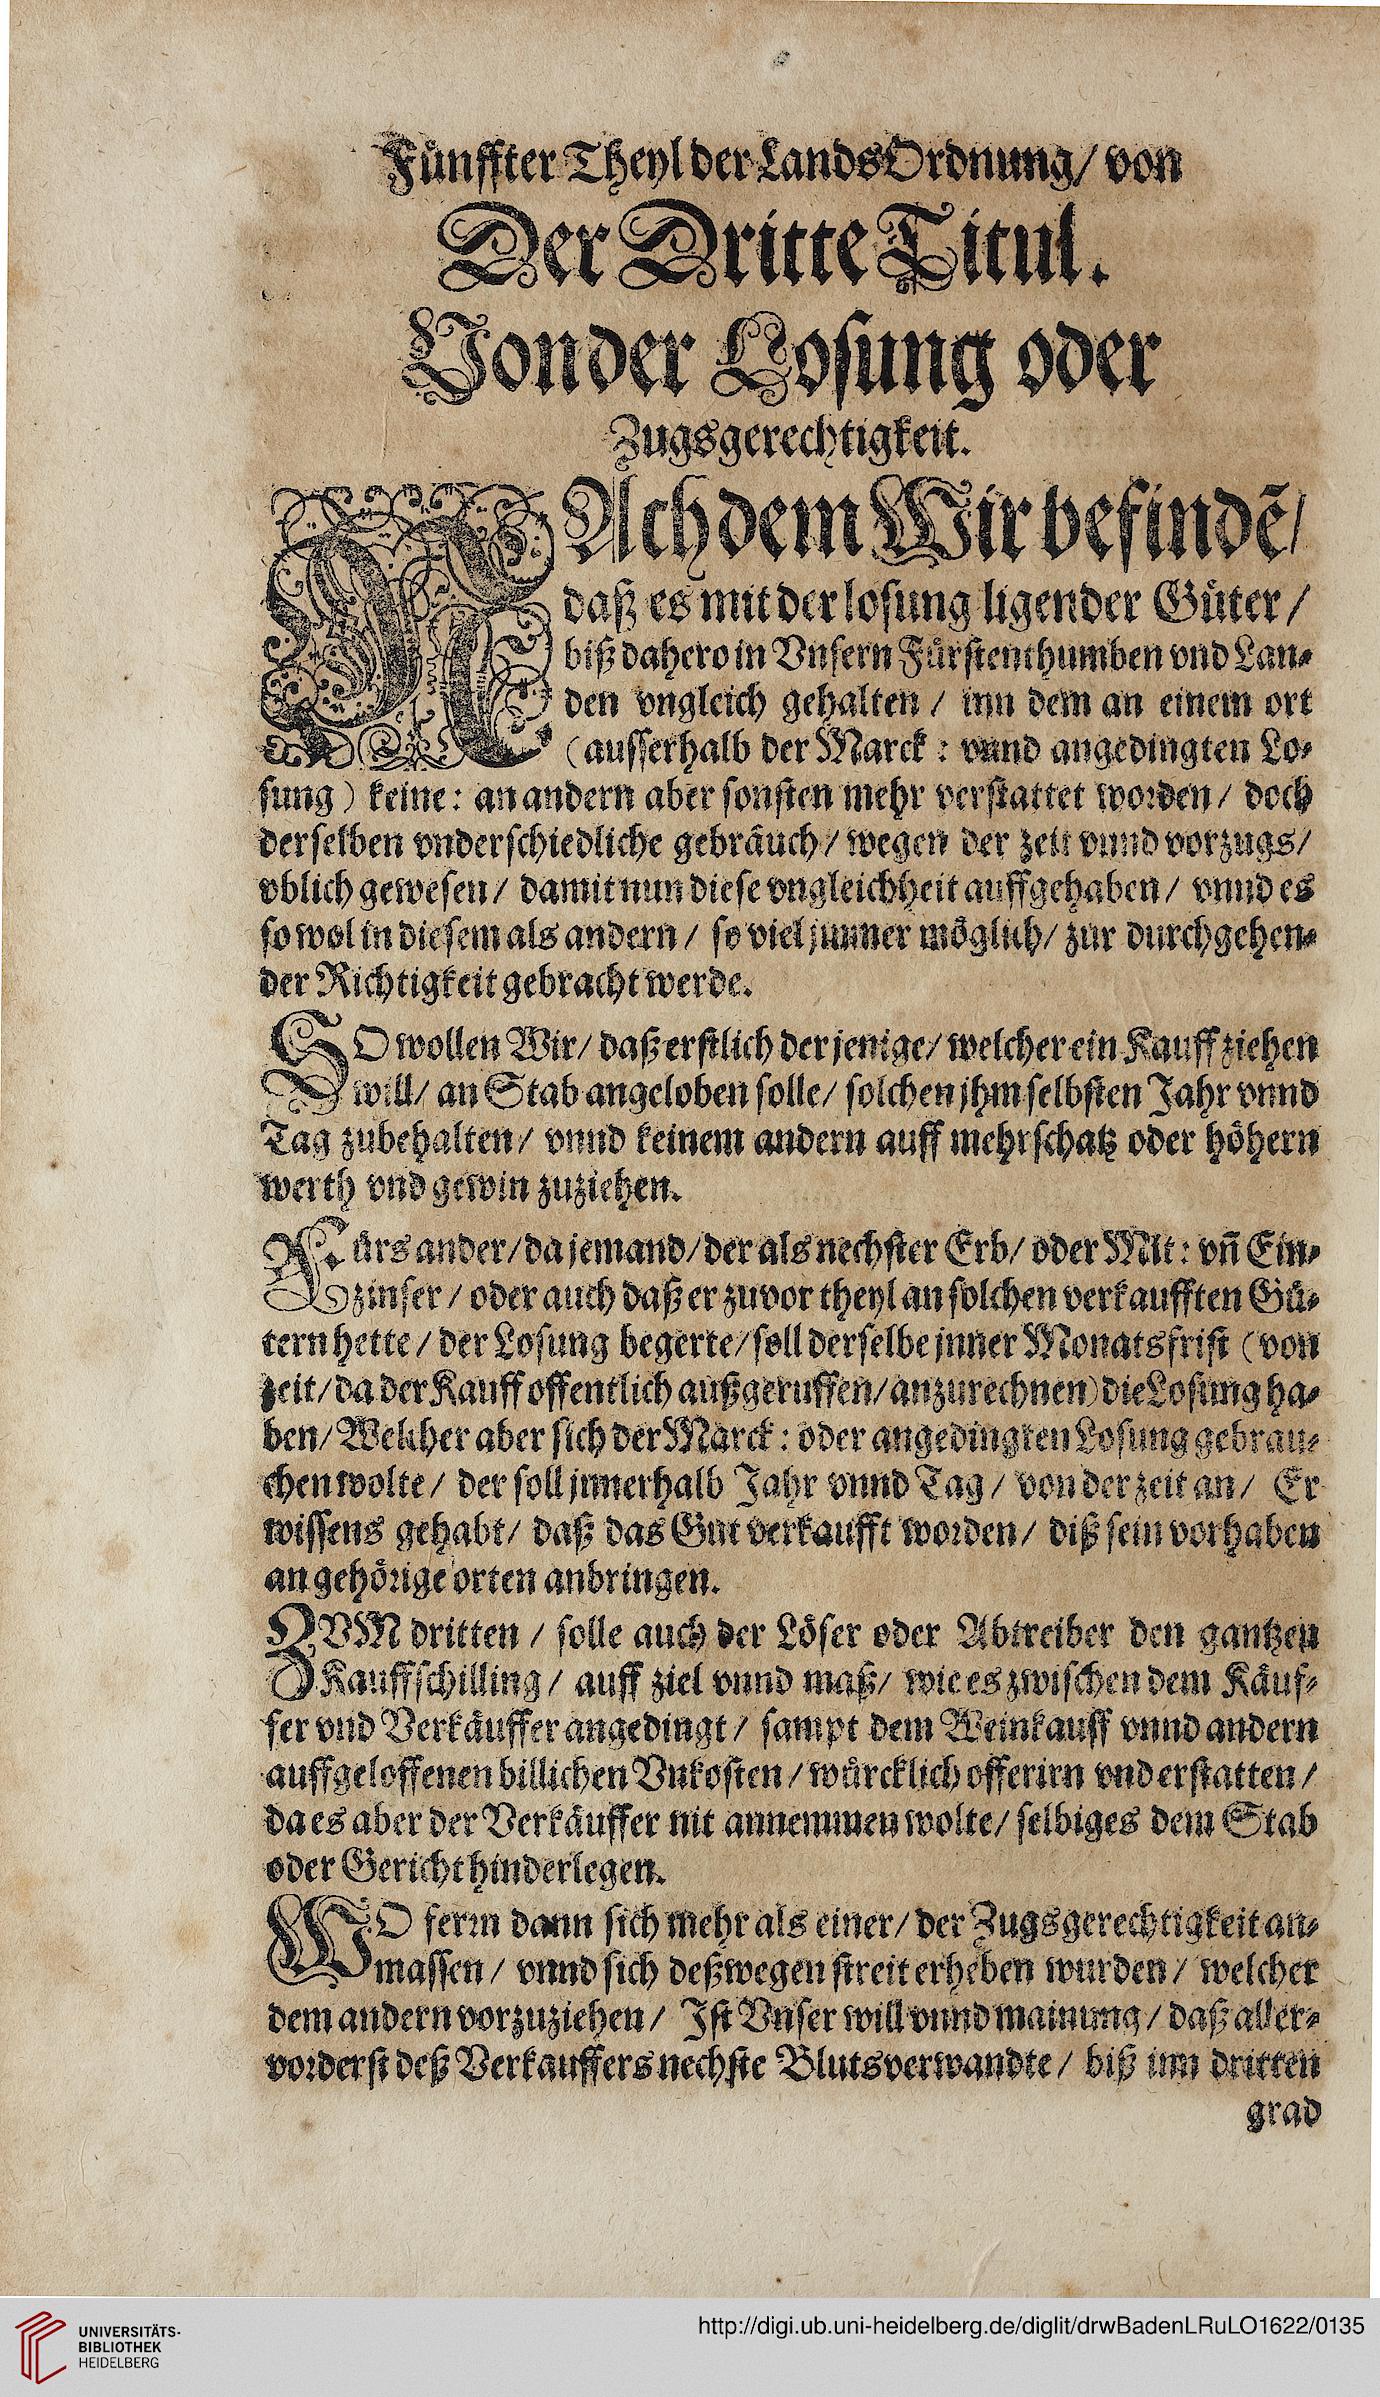 Fünffter Theyl der LandsOrdnung/ von
Der Dritte Titul.
Von der Losung oder
Zugsgerechtigkeit.
NAch dem Wir befindẽ/
daß es mit der losung ligender Güter/
biß dahero in Vnsern Fürstenthumben vnd Lan-
den vngleich gehalten / inn dem an einem ort
(ausserhalb der Marck: vnnd angedingten Lo-
sung) keine: an andern aber sonsten mehr verstattet worden/ doch
derselben vnderschiedliche gebräuch/ wegen der zeit vnnd vorzugs/
vblich gewesen/ damit nun diese vngleichheit auffgehaben/ vnnd es
so wol in diesem als andern / so viel jmmer möglich/ zur durchgehen-
der Richtigkeit gebracht werde.
SO wollen Wir/ daß erstlich der jenige/ welcher ein Kauff ziehen
will/ an Stab angeloben solle/ solchen jhm selbsten Jahr vnnd
Tag zubehalten/ vnnd keinem andern auff mehrschatz oder höhern
werth vnd gewin zuziehen.
Fürs ander/ da jemand/ der als nechster Erb/ oder Mit: vñ Ein-
zinser / oder auch daß er zuvor theyl an solchen verkaufften Gü-
tern hette / der Losung begerte/ soll derselbe jnner Monatsfrist (von
zeit/ da der Kauff offentlich außgeruffen/ anzurechnen) die Losung ha-
ben/ Welcher aber sich der Marck: oder angedingten Losung gebrau-
chen wolte/ der soll jnnerhalb Jahr vnnd Tag / von der zeit an/ Er
wissens gehabt/ daß das Gut verkaufft worden/ diß sein vorhaben
an gehörige orten anbringen.
ZVM dritten / solle auch der Löser oder Abtreiber den gantzen
Kauffschilling / auff ziel vnnd maß/ wie es zwischen dem Käuf-
fer vnd Verkäuffer angedingt / sampt dem Weinkauff vnnd andern
auffgeloffenen billichen Vnkosten / würcklich offerirn vnd erstatten/
da es aber der Verkäuffer nit annemmen wolte/ selbiges dem Stab
oder Gericht hinderlegen.
WO ferrn dann sich mehr als einer/ der Zugsgerechtigkeit an-
massen / vnnd sich deßwegen streit erheben wurden/ welcher
dem andern vorzuziehen/ Ist Vnser will vnnd mainung / daß aller-
vorderst deß Verkauffers nechste Blutsverwandte/ biß inn dritten
grad
UNIVERSITÄTS-
BIBLIOTHEK
HEIDELBERG
http://digi.ub.uni-heidelberg.de/diglit/drwBadenLRuLO1622/0135